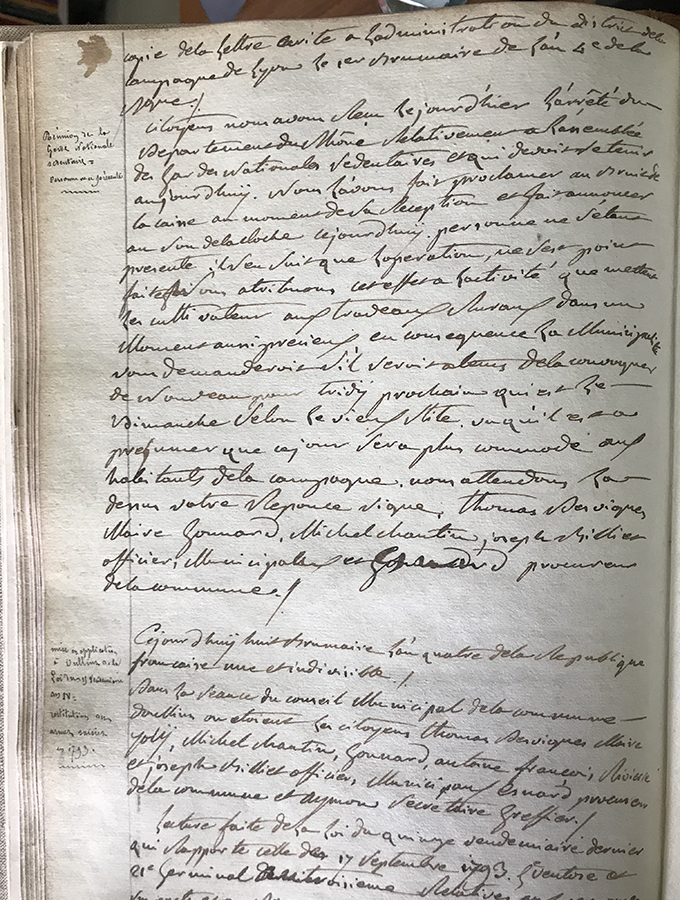 copie dela Lettre Ecrite a Ladministration du district dela
Campagne de Lyon le 1er Brumaire de L'an 4e dela
Rque./
Réunion de la
Garde Nationale
sédentaire :
personne ne se présente
Citoyens nous avons Recu cejourdhier L'arrêté du
Departement du Rhône Relativement a Lassemblée
des Gardes Nationales Sedentaires et qui devoit se tenir
aujourdhuy. Nous L'avons fait proclamer au Bruit de
la caisse au moment de sa Reception et fait annoncer
au Son dela cloche cejourdhuy. personne ne s'étant
presenté il s'en suit que Loperation, ne s'est point
faite Nous atribuons cet effet a Lactivité que mettent
Les cultivateur aux travaux Ruraux dans un
Moment aussi precieux en consequence La Municipalité
vous demanderoit s'il seroit a tems dela convoquer
de Nouveau pour tridy prochain qui est Le
Dimanche Selon Le vieux Stile, vu qu'il est a
presumer que ce jour Sera plus commode aux
habitants dela campagne. nous attendons La
dessus votre Reponce signé, thomas Desvignes
Maire Gonnard, Michel chantin, joseph Billiet
officiers Municipaux et procureur
dela commune./
mise en application
à Oullins de la
Loi du 15 Vendémiaire
an IV :
restitution aux
armes saisies
en 1793.
Cejourdhuy huit Brumaire L'an quatre dela Republique
francaise une et indivisible./
Dans La Seance du conseil Municipal dela commune
doullins ou etoient Les citoyens thomas Desvignes Maire
Joly, Michel chantin, Gonnard, antoine françois Riviere
et joseph Billiet officiers Municipaux Esnard procureur
dela commune et aymon Secretaire Greffier./
Lecture faite de La Loi du quinze vendemiaire dernier
qui Rapporte celle des 17 Septembre 1793. Ventose et
21e Germinal troisieme Relatives